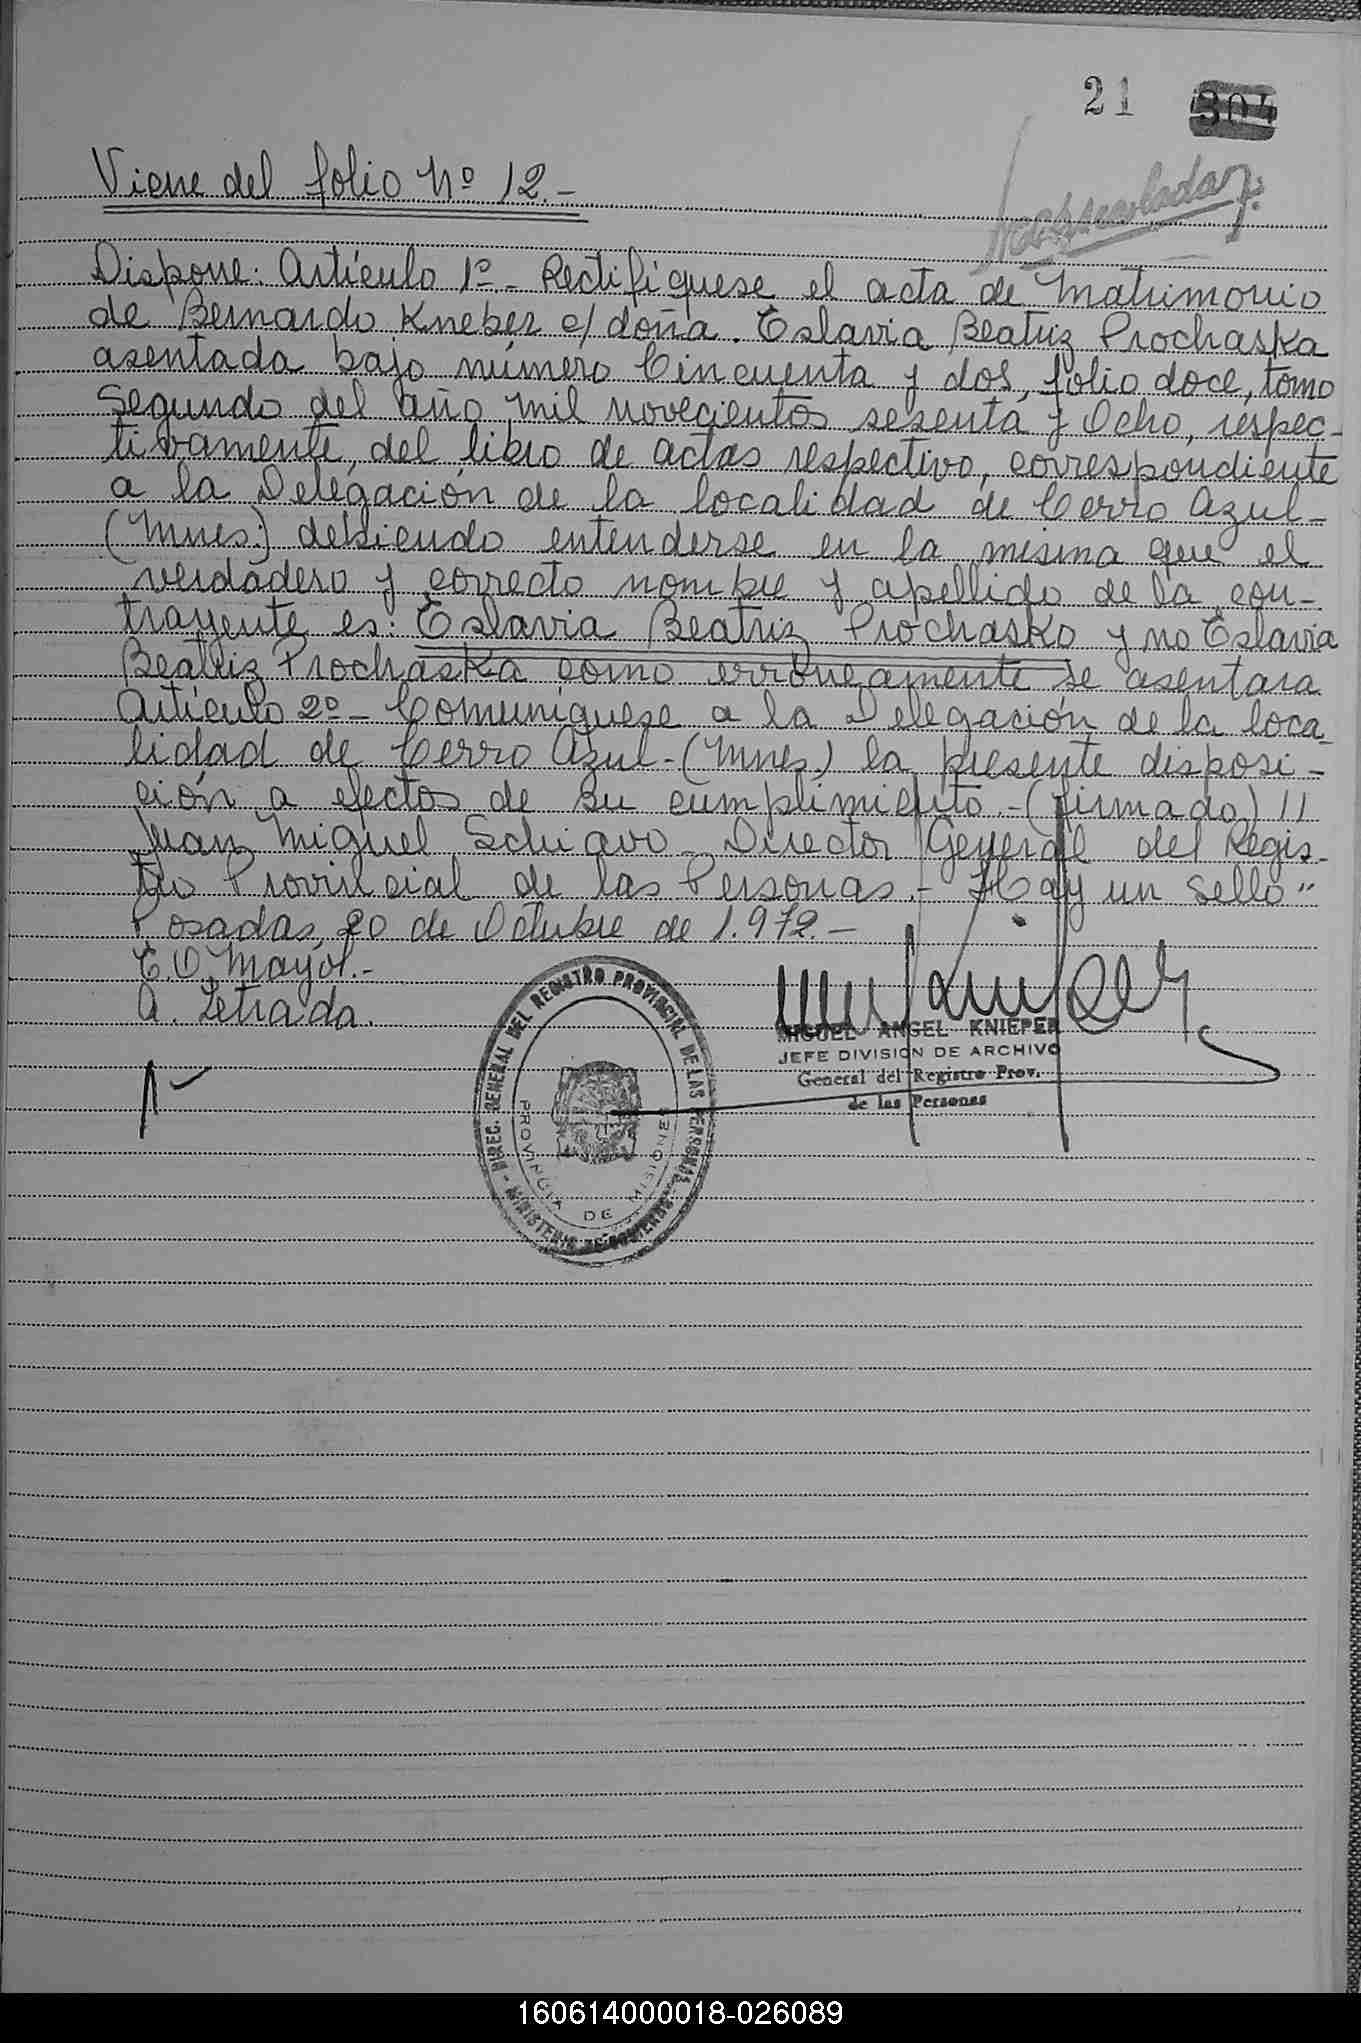 21
Viene del folio Nº 12.-
Dispone: Artículo 1º- Rectifiquese el acta de Matrimonio
de Bernardo Kneber c/ doña. Eslavia Beatriz Prochaska
asentada bajo número Cincuenta y dos, folio doce, tomo
Segundo del año mil novecientos sesenta y Ocho, respec-
tivamente, del libro de actas respectivo, correspondiente
a la Delegación de la localidad de Cerro Azul-
(Mnes.) debiendo entenderse en la misma que el
verdadero y correcto nombre y apellido de la con-
trayente es: Eslavia Beatriz Prochasko y no Eslavia
Beatriz Prochaska como erroneamente se asentara
Artículo 2º- Comuniquese a la Delegación de la loca-
lidad de Cerro Azul-(Mnes.) la presente disposi-
ción a efectos de su cumplimiento.-(firmado) 11
Juan Miguel Schiavo Director General del Regis-
tro Provincial de las Personas.- Hay un Sello"
Posadas, 20 de Octubre de 1.972.-
E.O. Mayor.-
A. Letrada.
MIGUEL ANGEL KNIEPER
JEFE DIVISION DE ARCHIVO
General del Registro Prov.
de las Personas
DIREC. GENERAL DEL REGISTRO PROVINCIAL DE LAS PERSONAS - MINISTERIO DE GOBIERNO -
PROVINCIA DE MISIONES
160614000018-026089